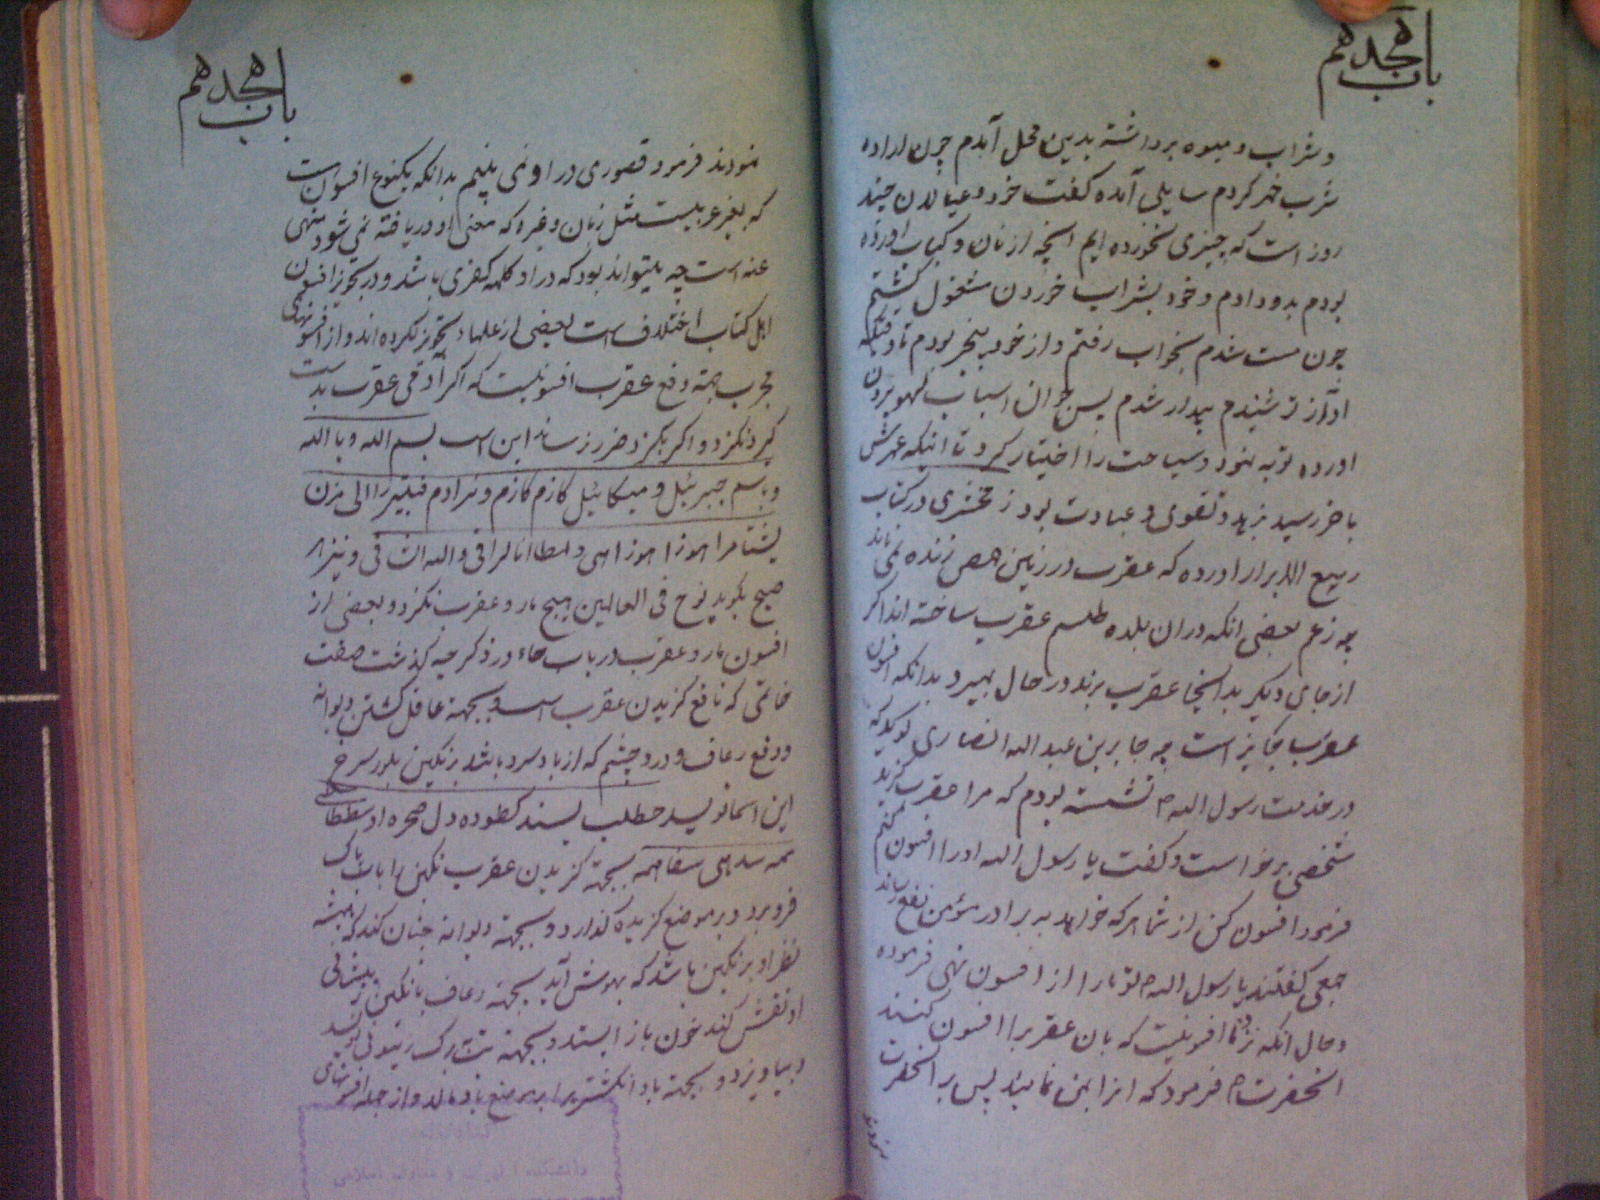 باب هجدهم
و شراب و میوه برداشته بدین محل آمدم چون اراده
شرب خمر کردم سایلی آمده گفت خود و عیالان چند
روز است که چیزی نخورده ایم آنچه از نان و کباب آورده
بودم بدو دادم و خود بشراب خوردن مشغول گشتم
چون مست شدم بخواب رفتم و از خود بیخبر بودم تا وقتیکه
آواز تو شنیدم بیدار شدم پس جوان اسباب لهو بیرون
آورده توبه نمود و سیاحت را اختیار کرد تا آنکه عمرش
باخر رسید بزهد و تقوی و عبادت بود زمخشری در کتاب
ربیع الابرار آورده که عقرب در زمین حمص زنده نمی ماند
چه زعم بعضی آنکه در آن بلده طلسم عقرب ساخته اند اگر
از جای دیگر بدانجا عقرب برند در حال بمیرد بدانکه افسون
عقرب جایز است چه جابر بن عبد الله انصاری گوید که
در خدمت رسول الله ص نشسته بودم که مرا عقرب گزید
شخصی برخواست و گفت یا رسول الله او را افسون کنم
فرمود افسون کن از شما هر که خواهد به برادر مؤمن نفع رساند
جمعی گفتند یا رسول الله ص تو ما را از افسون نهی فرموده
و حال آنکه نزد ما افسونیست که بآن عقرب را افسون کنند
آنحضرت ص فرمود که آنرا بمن نمائید پس بر آنحضرت
نمودند
باب هجدهم
نمودند فرمود قصوری در او نمی بینم بدانکه یکنوع افسون است
که بغیر عربیست مثل زبان و غیره که معنی او دریافته نمی شود منهی
عنه است چه میتواند بود که در او کلمه کفری باشد و در تجویز افسون
اهل کتاب اختلاف است بعضی از علماء تجویز نکرده اند و از افسونهای
مجرب جهة دفع عقرب افسونیست که اگر آدمی عقرب بدست
گیرد نگزد و اگر بگزد ضرر نرساند این است بسم الله و بالله
و باسم جبرئیل و میکائیل کازم کازم
صبح بگوید نوح فی العالمین هیچ مار و عقرب نگزد و بعضی از
افسون مار و عقرب در باب حاء در ذکر حیه گذشت صفت
خاتمی که نافع گزیدن عقرب است و بجهة عاقل گشتن دیوانه
و دفع رعاف و درد چشم که از باد سرد باشد بر نگین بلور سرخ
این اسما نویسد
بجهة گزیدن عقرب نگین را بآب پاک
فرو برد و بر موضع گزیده گذارد و بجهة دیوانه چنان کند که همیشه
نظر او بر نگین باشد که بهوش آید بجهة رعاف با نگین بر پیشانی
او نقش کند خون باز ایستد و بجهة تب بر برگ زیتونی نویسد
و بیاویزد و بجهة باد انگشتر را بر موضع باد مالد و از جمله افسونهای